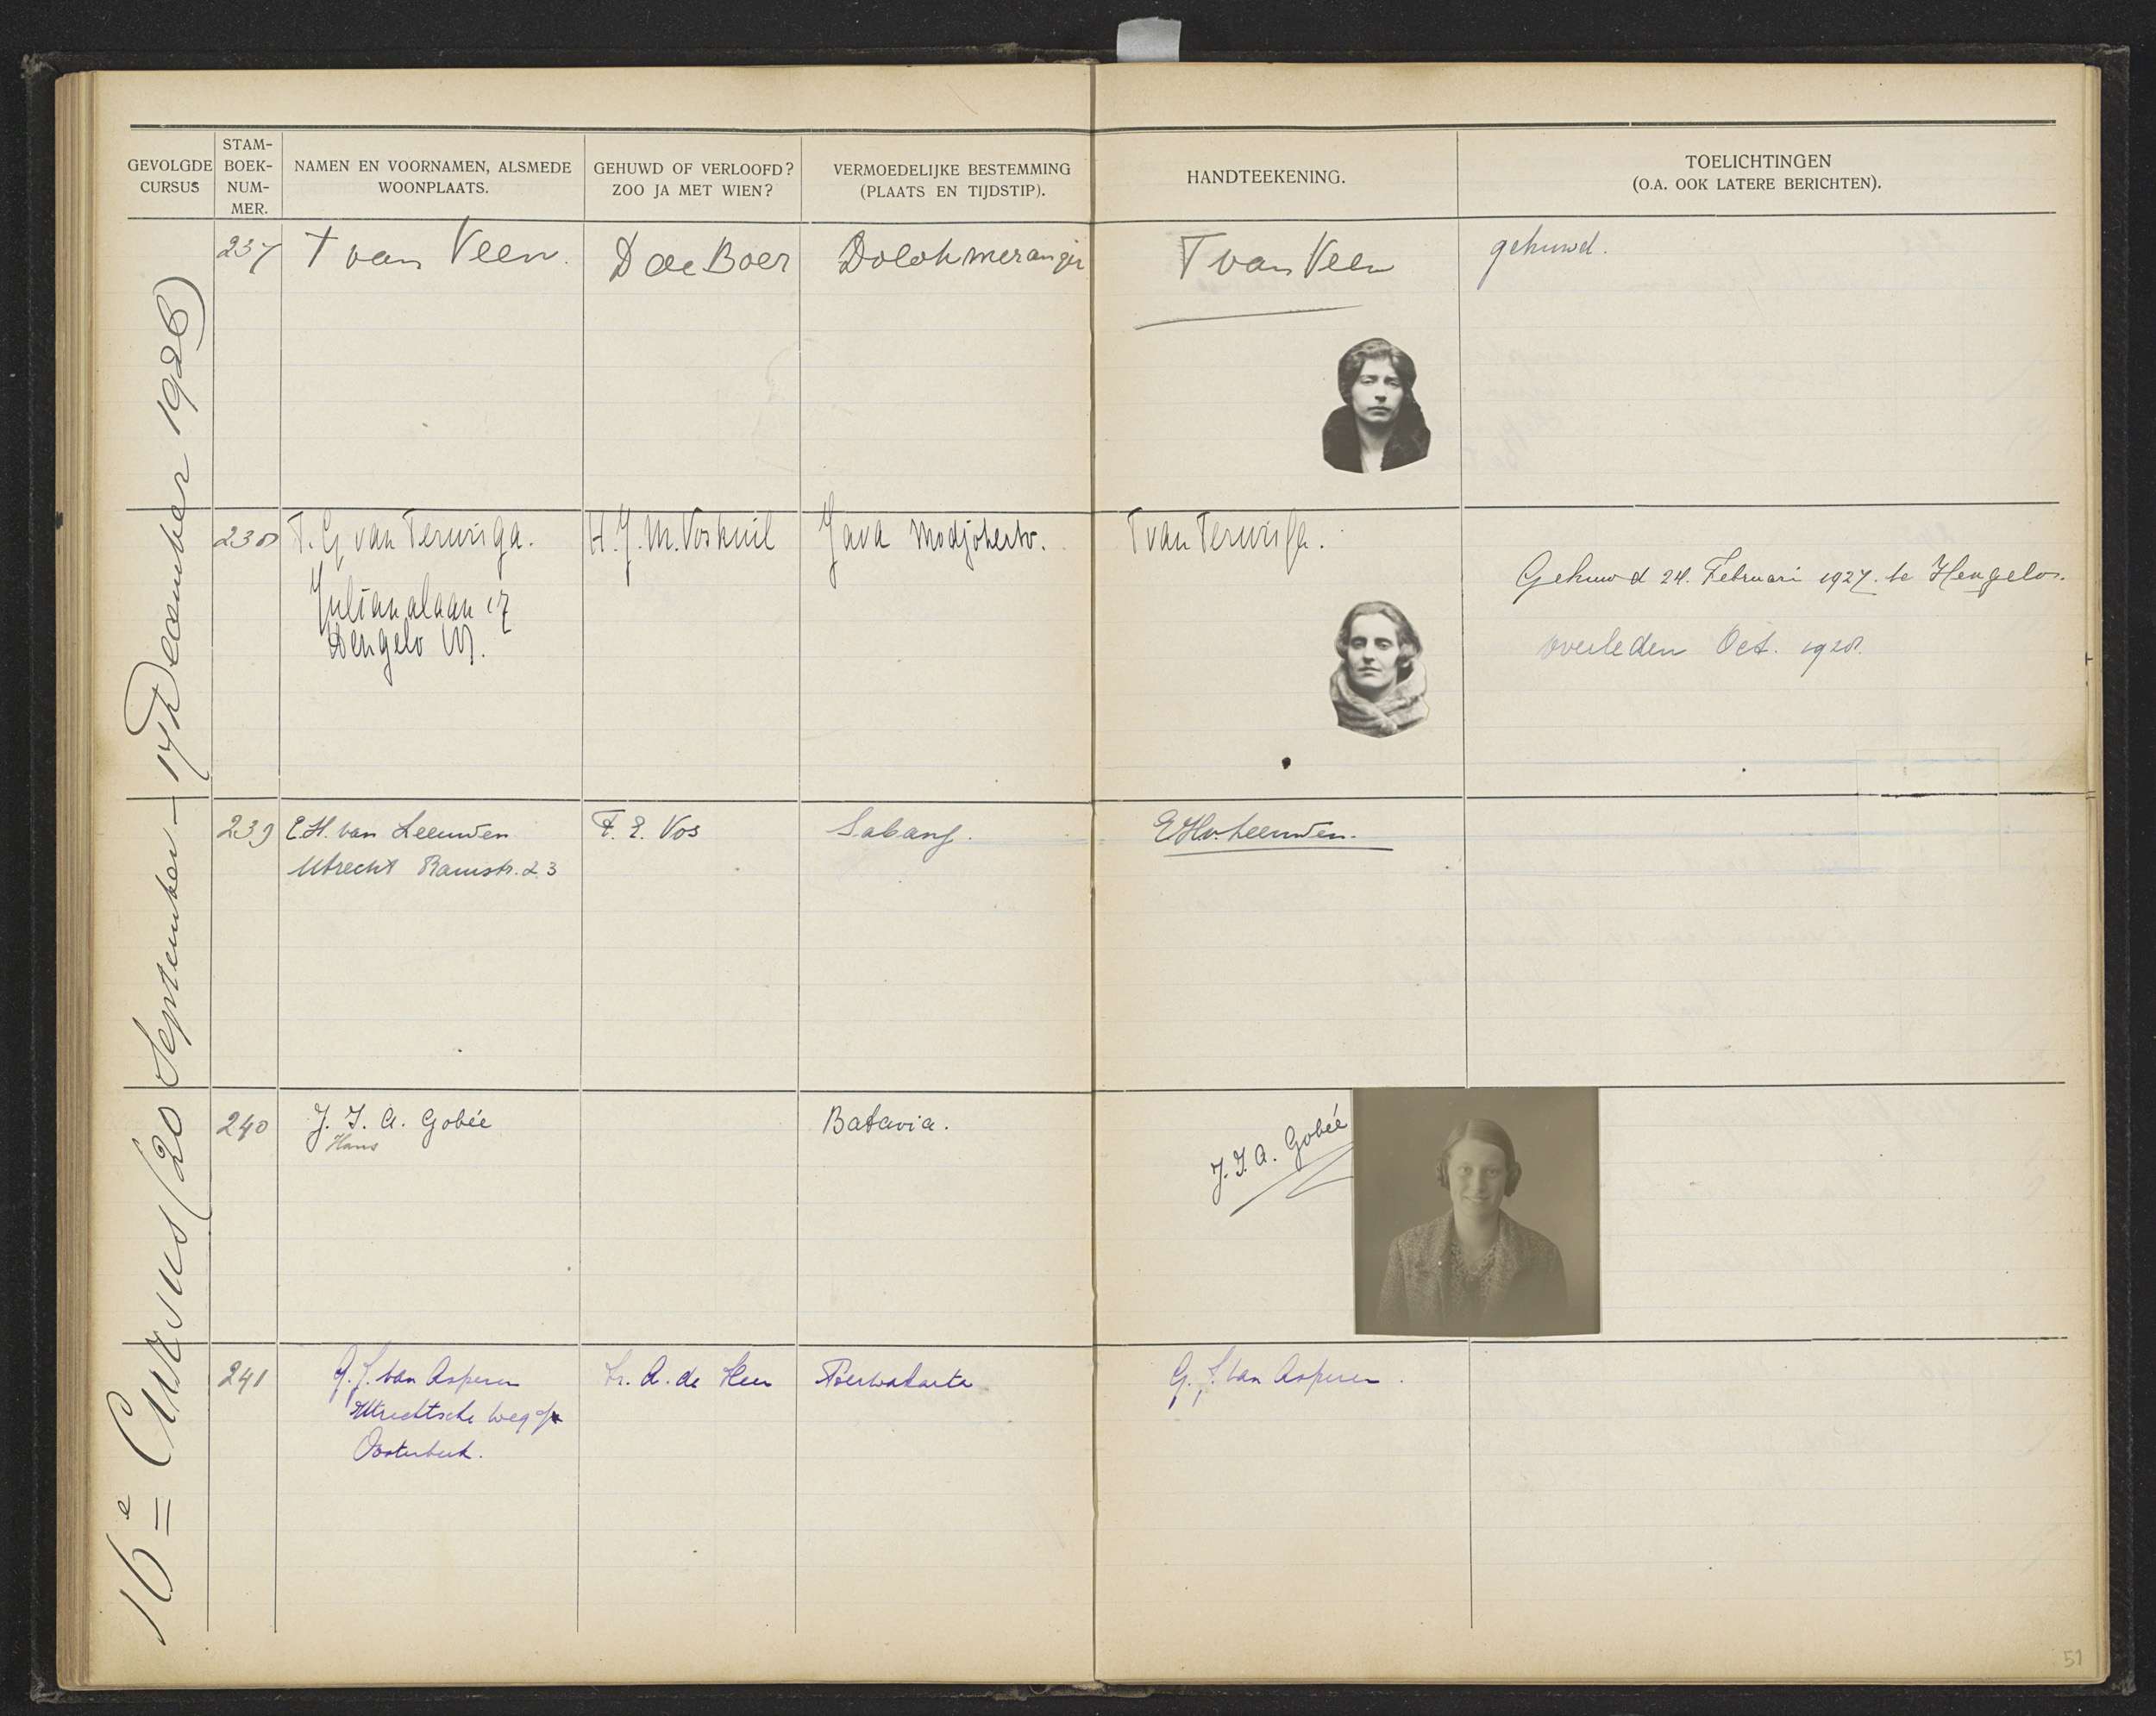 GEVOLGDE CURSUS
STAM-BOEK-NUM-MER.
NAMEN EN VOORNAMEN, ALSMEDE WOONPLAATS.
GEHUWD OF VERLOOFD? ZOO JA MET WIEN?
VERMOEDELIJKE BESTEMMING (PLAATS EN TIJDSTIP).
HANDTEEKENING.
TOELICHTINGEN
(O.A. OOK LATERE BERICHTEN).
16e Cursus (20 September - 17 December 1926)
237 T van Veen. D de Boer Dolok merangir T van Veen gehuwd.
238 T. G. van Terwisga. H. J. M. Voskuil Java Modjokerto. T van Terwisga.
Julianalaan 17
Hengelo
Gehuwd 24. Februari 1927. te Hengelo.
overleden Oct. 1928.
239 E.H. van Leeuwen F. E. Vos Sabang. EHv. Leeuwen.
Utrecht Ramstr. 23
240 J. J. A. Gobée Batavia. J. J. A. Gobée
Hans
241 G. J. van Asperen A. de Heer Poerwakarta G. J. van Asperen.
Utrechtsche weg
Oosterbeek.
51